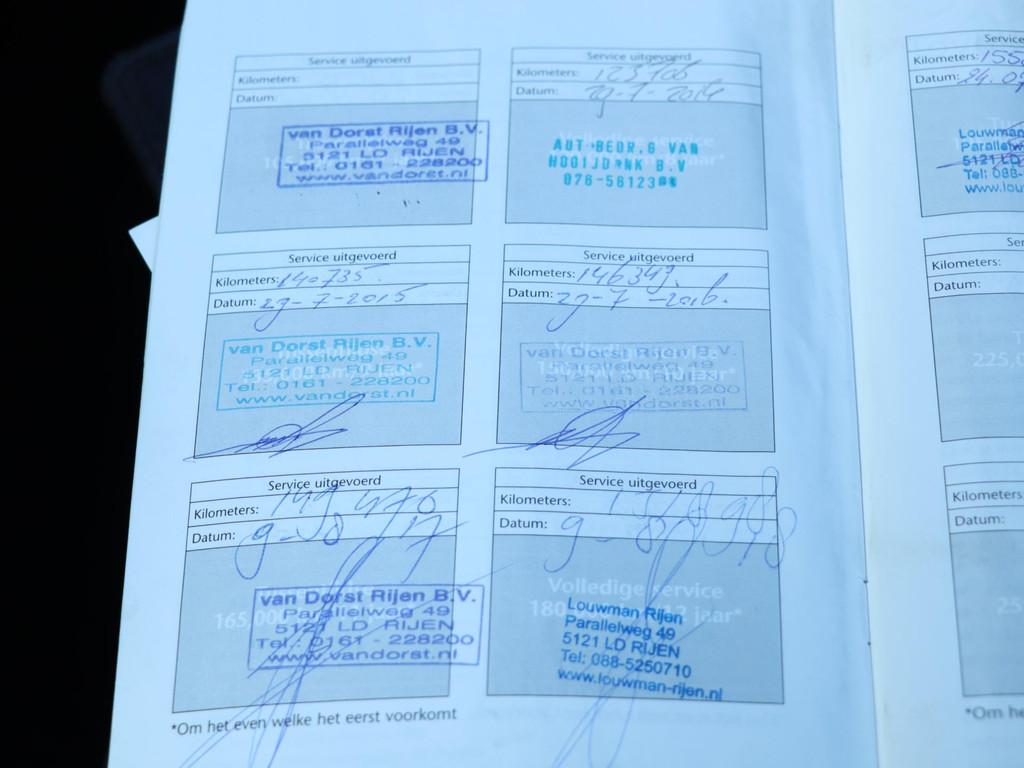 Service uitgevoerd
Kilometers:
Datum:
van Dorst Rijen B.V.
Parallelweg 49
5121 LD RIJEN
Tel.: 0161 - 228200
www.vandorst.nl
Service uitgevoerd
Kilometers:
Datum: 29-7-2014
Volledige service
HOOIJDONK B.V
076-56123
Service uitgevoerd
Kilometers: 140735
Datum: 29-7-2015
van Dorst Rijen B.V.
Parallelweg 49
5121 LD RIJEN
Tel.: 0161 - 228200
www.vandorst.nl
Service uitgevoerd
Kilometers: 146349.
Datum: 29-7-2016.
van Dorst Rijen B.V.
Parallelweg 49
5121 LD RIJEN
Tel.: 0161 - 228200
www.vandorst.nl
Service uitgevoerd
Kilometers: 149476
Datum: 9-08 17
165.000
van Dorst Rijen B.V.
Parallelweg 49
5121 LD RIJEN
Tel.: 0161 - 228200
www.vandorst.nl
Service uitgevoerd
Kilometers:
Datum: 9-8-18
Volledige service
180 12 jaar*
Louwman Rijen
Parallelweg 49
5121 LD RIJEN
Tel: 088-5250710
www.louwman-rijen.nl
*Om het even welke het eerst voorkomt
Service
Kilometers: 155
Datum: 24.0
Louwman
Parallelw
5121 LD
Tel: 088-
www.lou
Ser
Kilometers:
Datum:
225,0
Kilometers
Datum:
25
*Om he